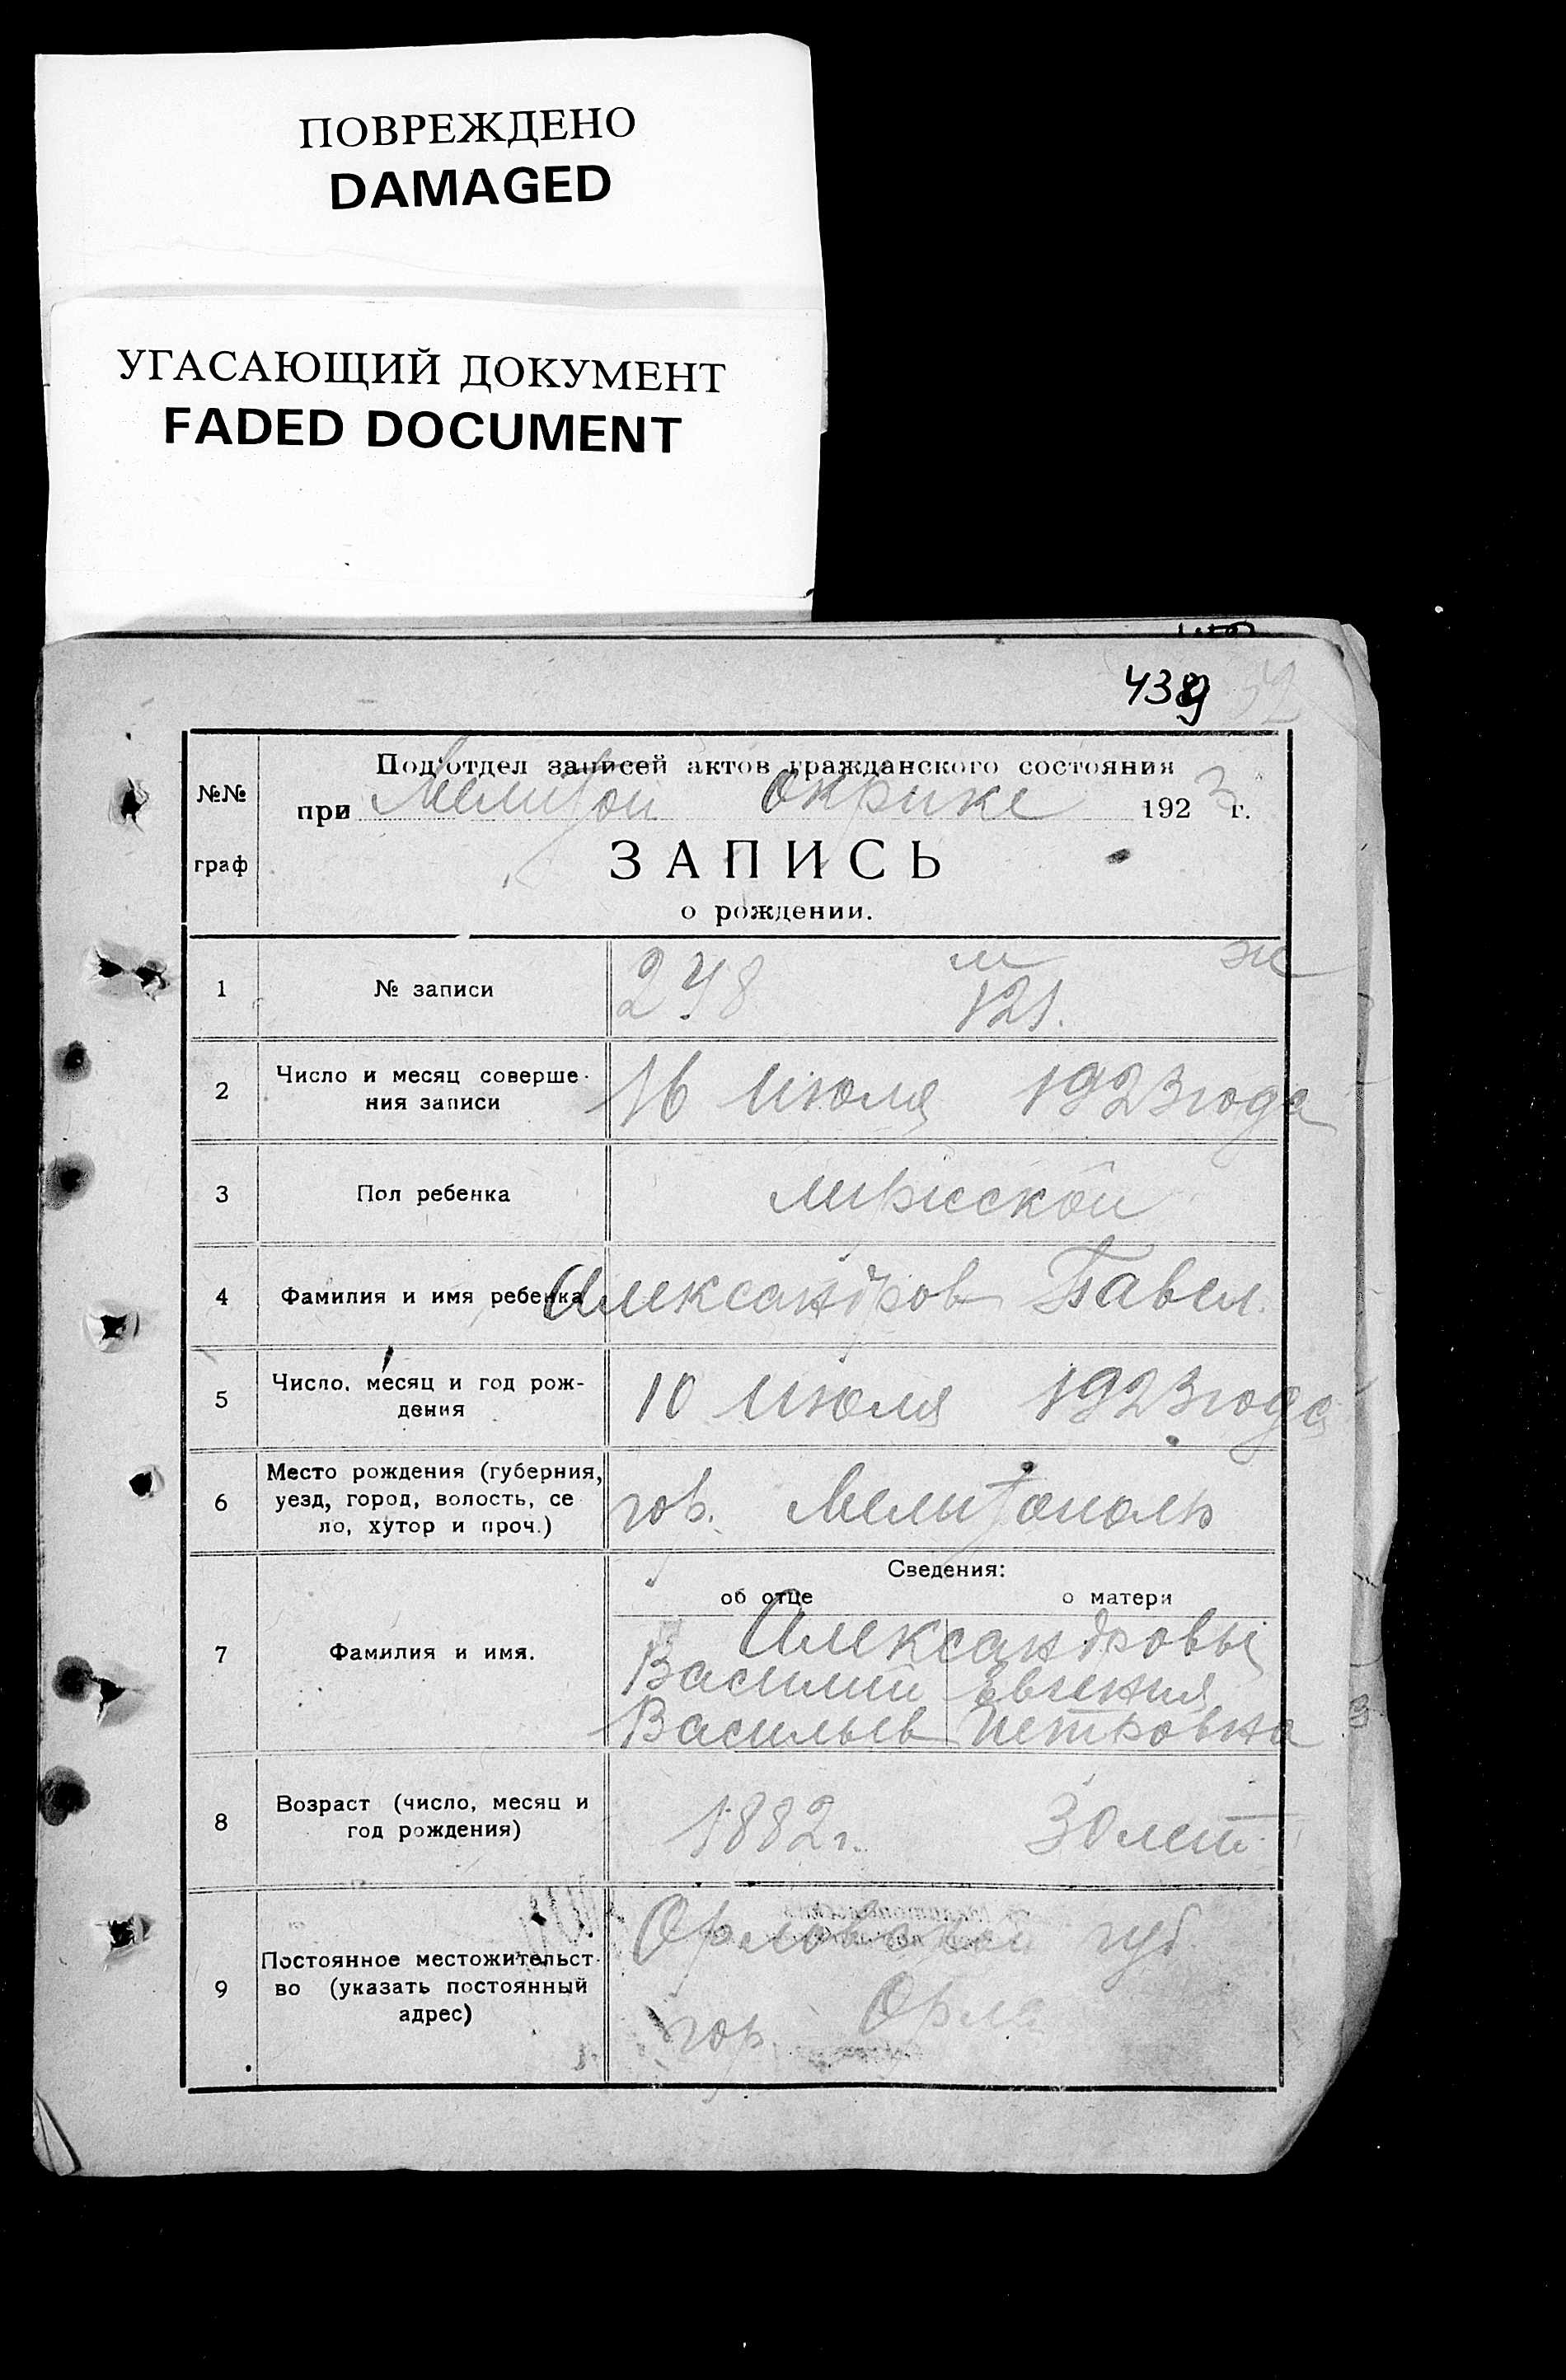 ПОВРЕЖДЕНО
DAMAGED
УГАСАЮЩИЙ ДОКУМЕНТ
FADED DOCUMENT
438
№№ граф
Под'отдел записей актов гражданского состояния
при Мелитоп Окрике 1923 г.
ЗАПИСЬ
о рождении.
1 № записи 248 м ж
121.
2 Число и месяц соверше-
ния записи 16 Июля 1923 года
3 Пол ребенка мужской
4 Фамилия и имя ребенка Александров Павел.
5 Число, месяц и год рож-
дения 10 Июля 1923 года
6 Место рождения (губерния,
уезд, город, волость, се
ло, хутор и проч.) гор. Мелитополь
Сведения:
об отце о матери
7 Фамилия и имя. Александровы
Василий Евгения
Васильев Петровна
8 Возраст (число, месяц и
год рождения) 1882 г. 30 лет
9 Постоянное местожительст-
во (указать постоянный
адрес) Орловской губ.
гор. Орла